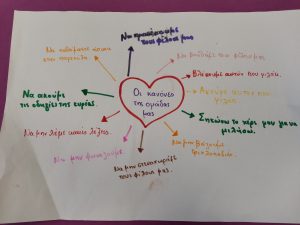 Να προσέχουμε
τους φίλους μας
Να καθόμαστε
Να βοηθάμε τον φίλο μας.
Βλέπουμε αυτόν που μιλάει.
Να ακούμε
τις οδηγίες της κυρίας.
Οι κανόνες
της ομάδας
μας
Ακούμε αυτόν που
μιλάει.
Σηκώνω το χέρι μου για να
μιλήσω.
Να μην λέμε κακές λέξεις.
Να μην φωνάζουμε.
Να μην
τους φίλους μας.
Να μην βάζουμε